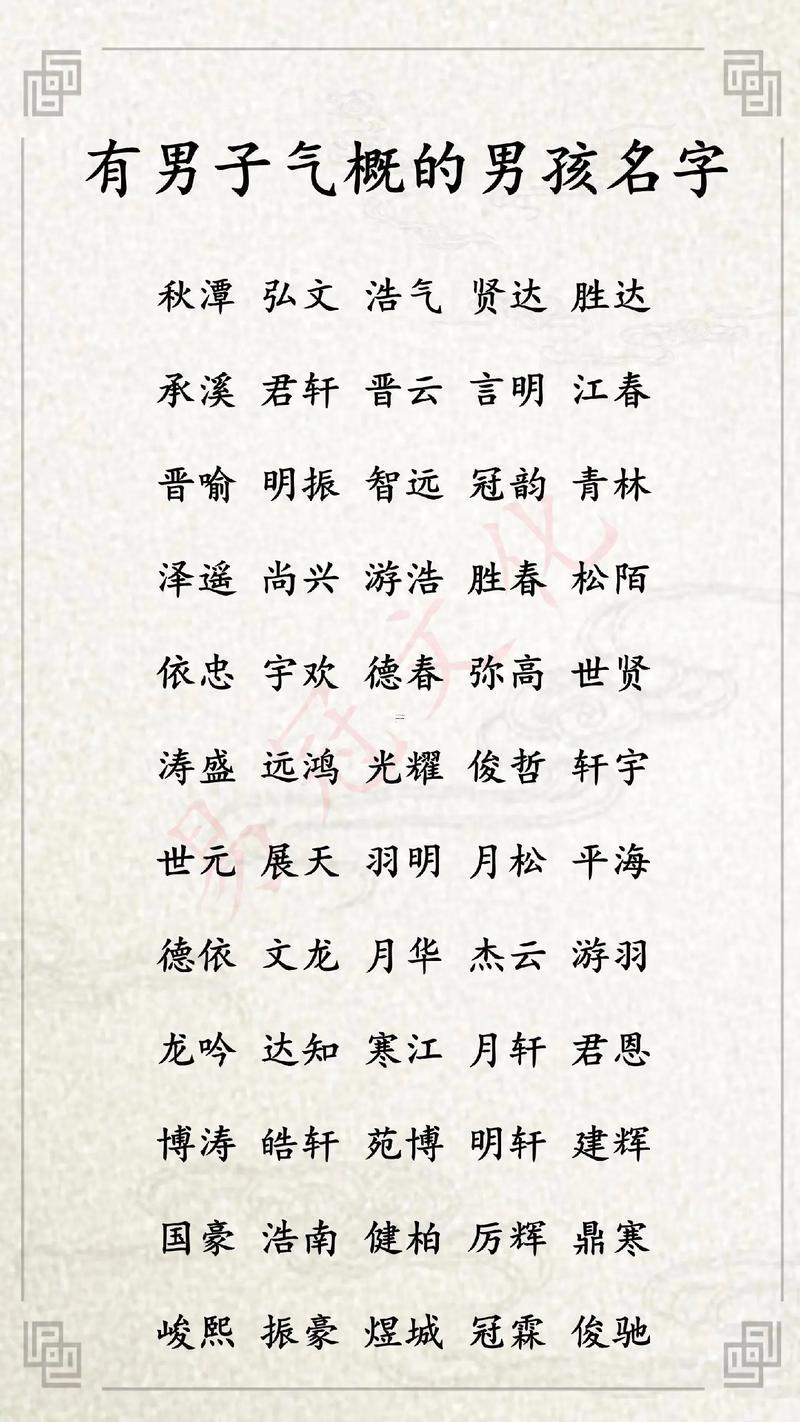 有男子气概的男孩名字
秋潭 弘文 浩气 贤达 胜达
承溪 君轩 晋云 言明 江春
晋喻 明振 智远 冠韵 青林
泽遥 尚兴 游浩 胜春 松陌
依忠 宇欢 德春 弥高 世贤
涛盛 远鸿 光耀 俊哲 轩宇
世元 展天 羽明 月松 平海
德依 文龙 月华 杰云 游羽
龙吟 达知 寒江 月轩 君恩
博涛 皓轩 苑博 明轩 建辉
国豪 浩南 健柏 厉辉 鼎寒
峻熙 振豪 煜城 冠霖 俊驰
易冠文化